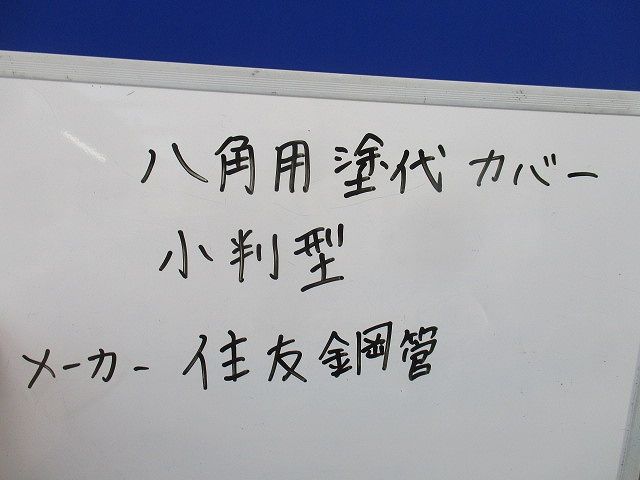 八角用塗代カバー
小判型
メーカー 住友鋼管